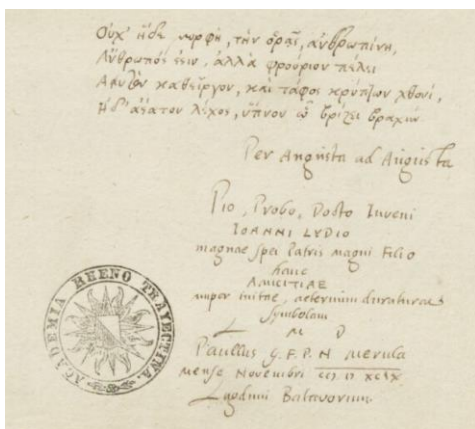 Οὐχ᾽ ἥδε μορφὴ, τὴν ὁρᾷς, ἀνθρωπίνη,
Ἄνθρωπός ἐστιν, ἀλλὰ φρούριον πέλει
καθεῖργον, καὶ τάφος χθονί,
λέχος, ὕπνον ᾧ βρίζει βραχύν
Per Angusta ad Augusta
Pio, Probo, Docto Iuveni
IOANNI LYDIO
magnae spei Patris magni Filio
hanc
AMICITIAE
nuper initae, aeternum duraturae
Symbolam
L M D
Paullus G. F. P. N. Merula
mense Novembri XCIX
Lugduni Batavorum
ACADEMIA RHENO TRAIECTINA.